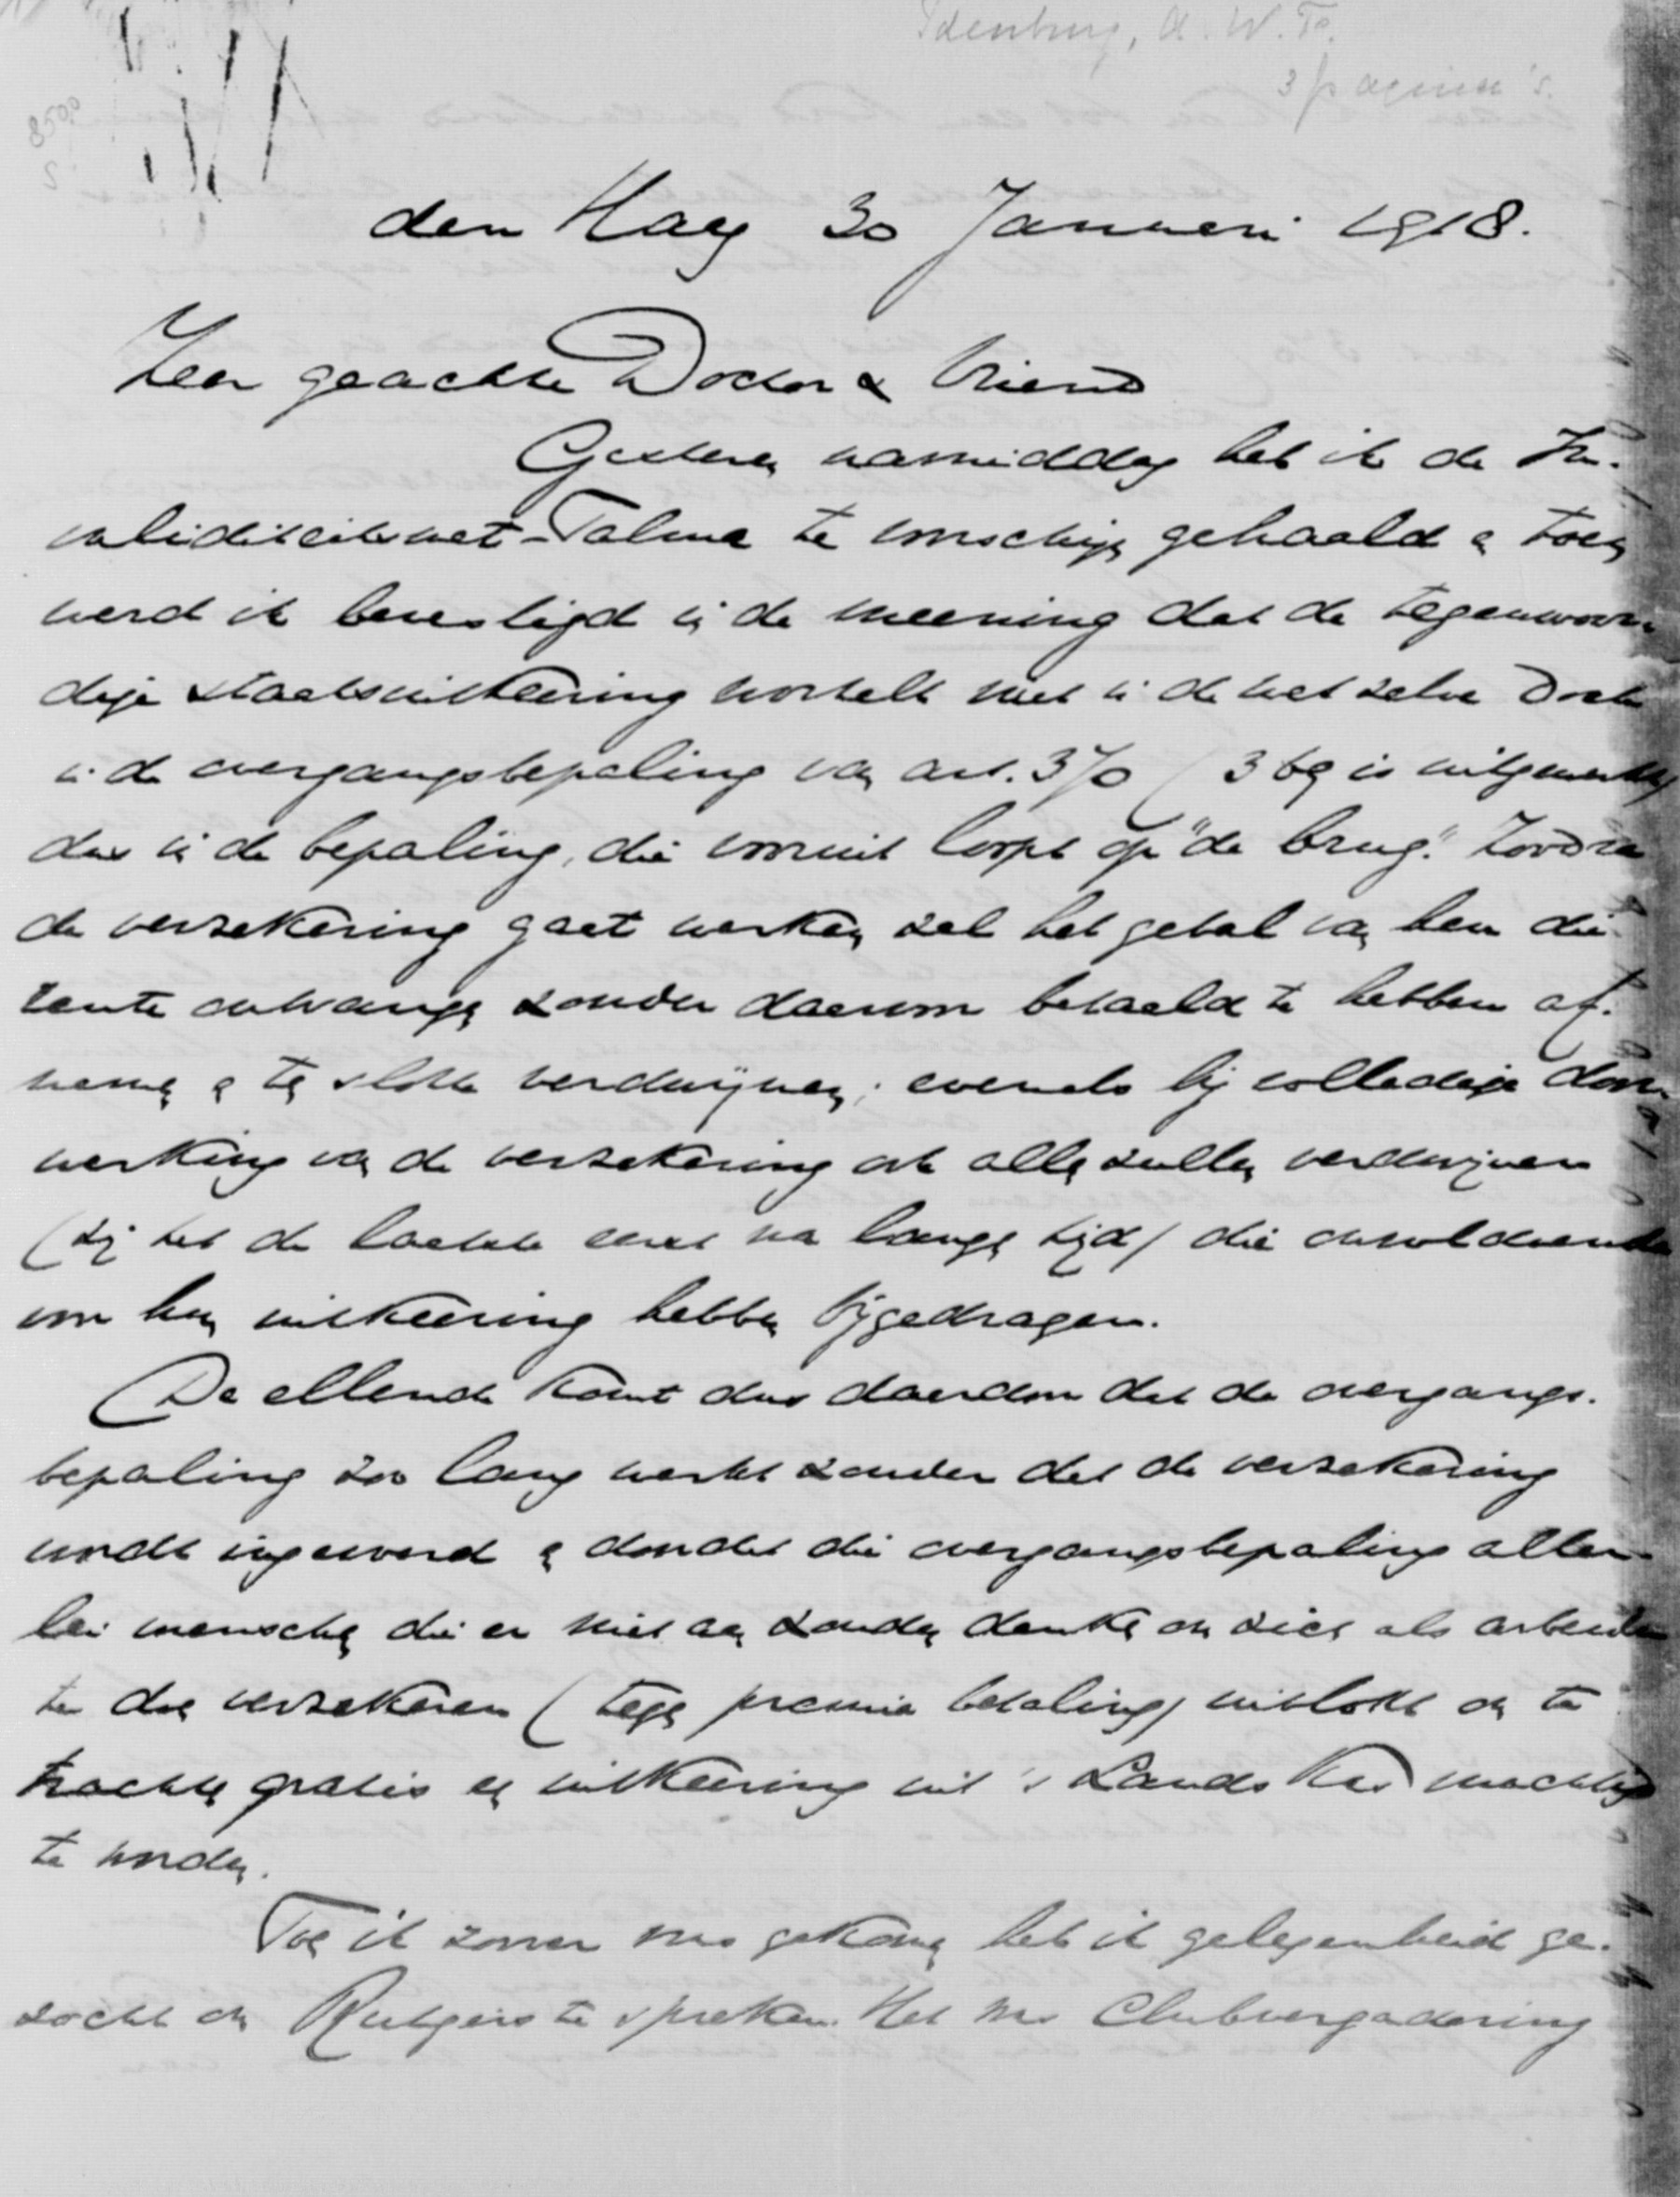 Idenburg, A. W. F.
3 pagina's.
den Haag 30 Januari 1918.
Zeer geachte Doctor & Vriend
Gisteren namiddag heb ik de In-
validiteitswet-Talma te voorschijn gehaald en toen
werd ik bevestigd in de meening dat de tegenwoor-
dige staatsuitkeering wortelt niet in de wet zelve doch
in de overgangsbepaling van art. 370 (369 is uitgewerkt)
dus in de bepaling, die vooruit loopt op "de brug." Zoodra
de verzekering gaat werken zal het getal van hen die
rente ontvangen zonder daarvoor betaald te hebben af-
nemen en ten slotte verdwijnen; evenals bij volledige door-
werking van de verzekering ook allen zullen verdwijnen
(zij het de laatste eerst na langen tijd) die onvoldoende
voor hun uitkeering hebben bijgedragen.
De ellende komt dus daardoor dat de overgangs-
bepaling zoo lang werkt zonder dat de verzekering
wordt ingevoerd en doordat die overgangsbepaling aller-
lei menschen die er niet aan zouden denken om zich als arbeider
te doen verzekeren (tegen premie betaling) uitlokt om te
trachten gratis een uitkeering uit 's Lands kas machtig
te worden.
Toen ik zoover was gekomen heb ik gelegenheid ge-
zocht om Rutgers te spreken. Het was Clubvergadering